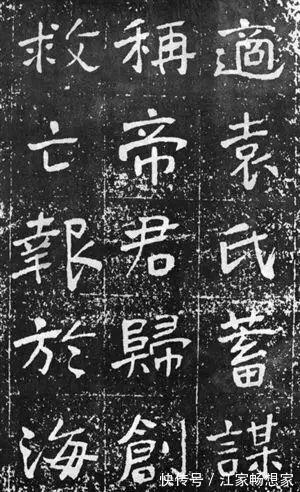 適袁氏蓄謀
稱帝君歸創
救亡報於海
快传号／江家畅想家